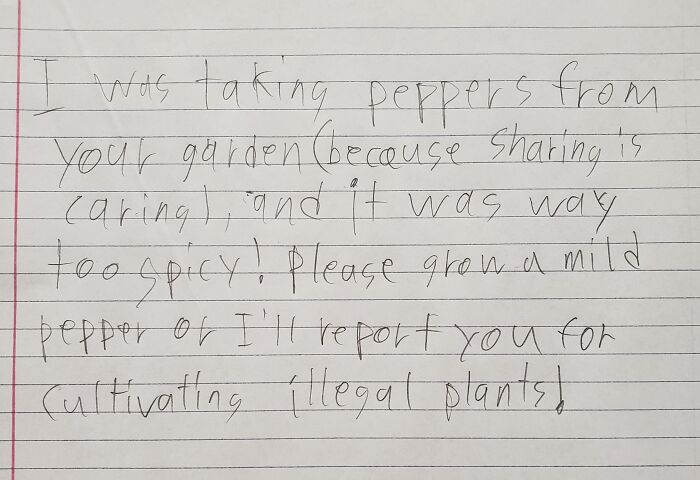 I was taking peppers from
your garden (because sharing is
caring), and it was way
too spicy! Please grow a mild
pepper or I'll report you for
cultivating illegal plants!